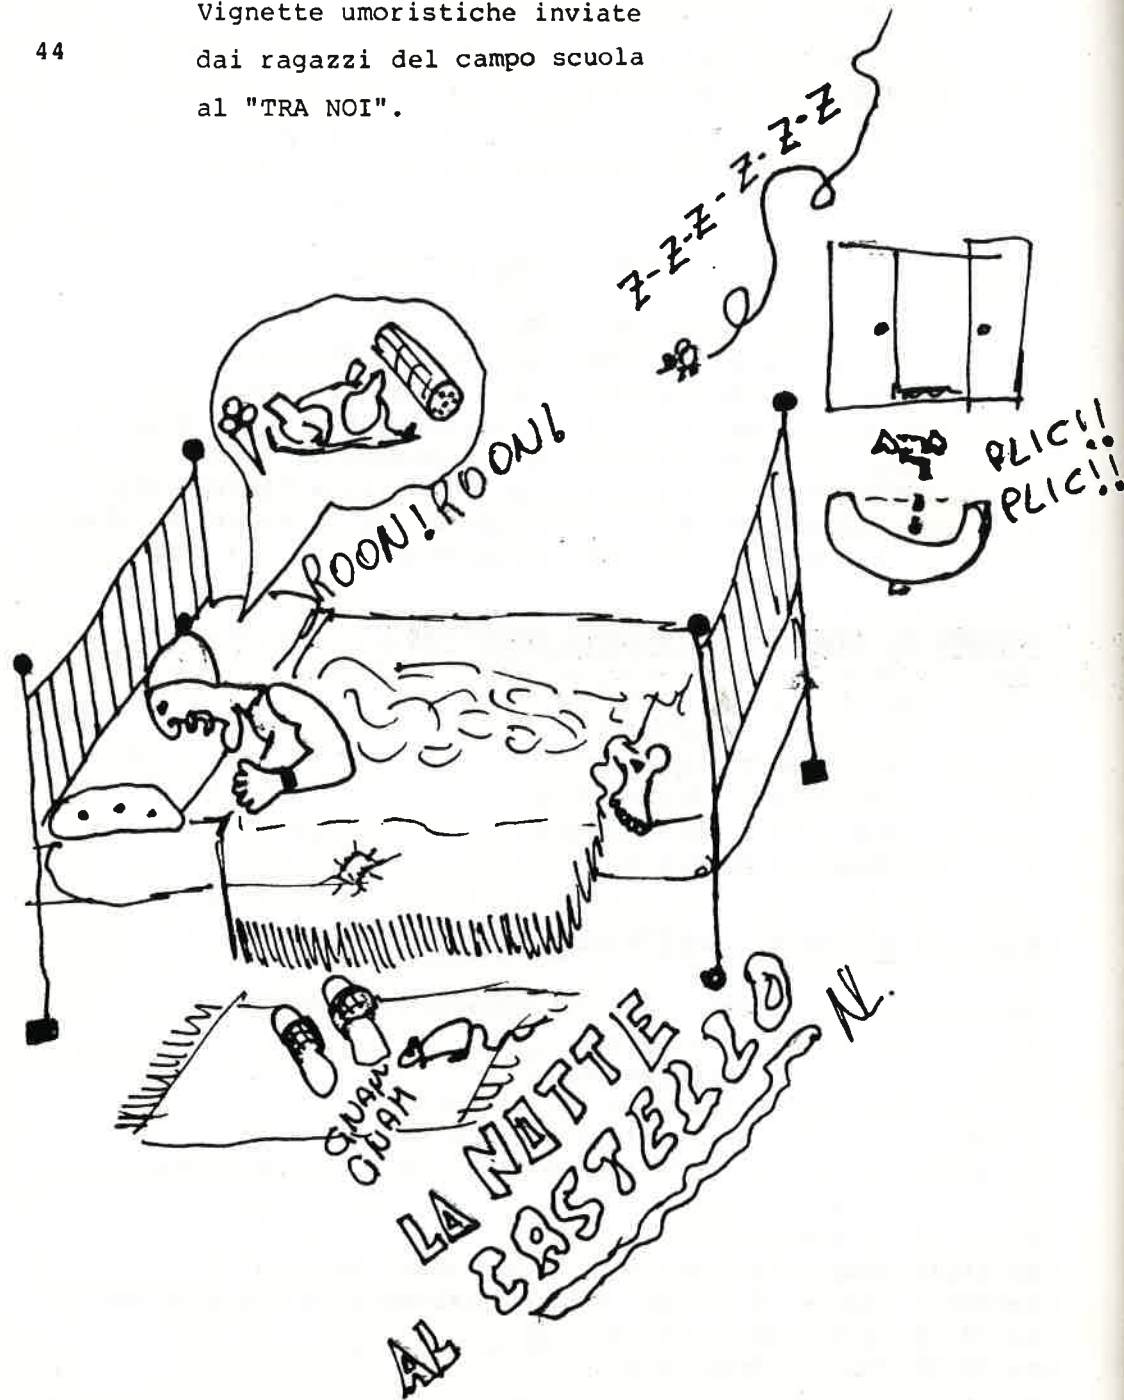 Vignette umoristiche inviate
44
dai ragazzi del campo scuola
al "TRA NOI".
Z-Z-Z-Z-Z-Z
ROON! ROON!
PLIC!!
PLIC!!
GNAM
GNAM
LA NOTTE
AL CASTELLO